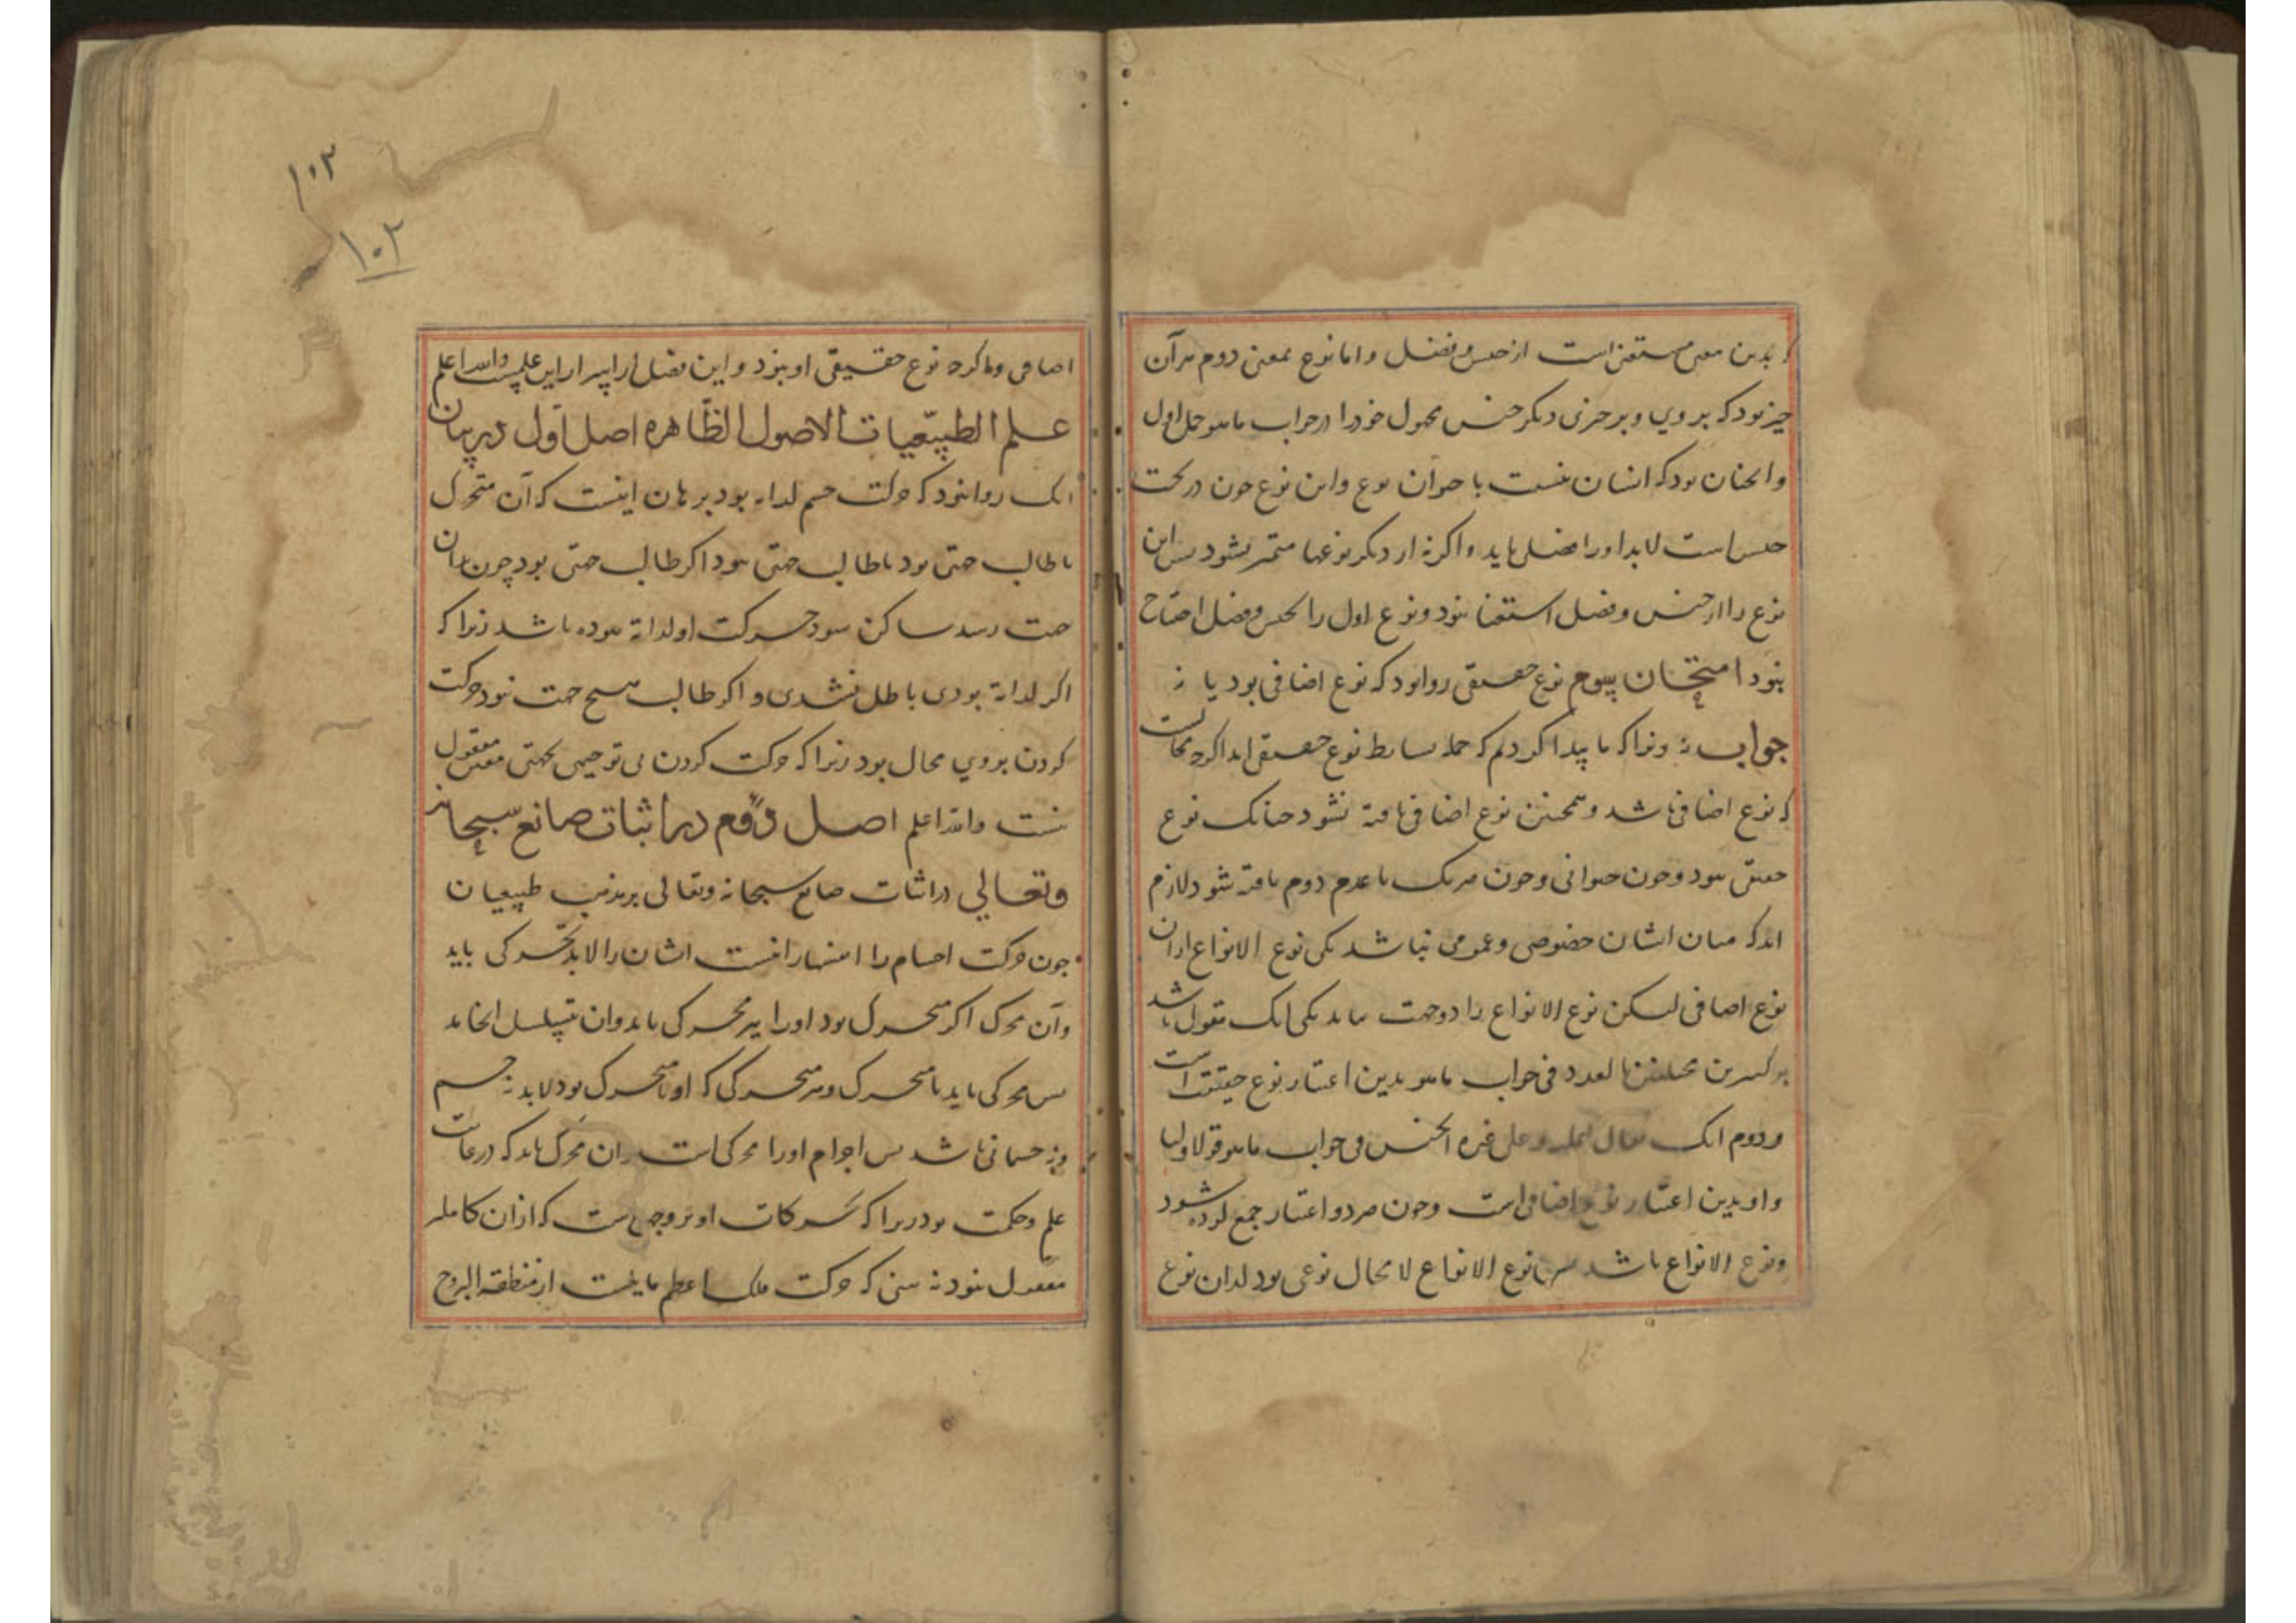 که بدین معنی مستغنی است از جنس و فصل و اما نوع بمعنی دوم هر آن
چیز بود که بر وی و بر چیزی دیگر جنس محمول خود را در جواب ماهو حمل اول
و انچنان بود که انسان بنسبت با حیوان نوع و این نوع چون در تحت
جنس است لابد او را فصلی باید و اکرنه از دیکر نوعها متمیز نشود پس این
نوع را از جنس و فصل استغنا نبود و نوع اول را بجنس و فصل احتیاج
نبود امتحان سوم نوع حقیقی روا بود که نوع اضافی بود یا نه
جواب نه زیرا که ما پیدا کردیم که جمله بسایط نوع حقیقی اند اکرچه محالست
که نوع اضافی باشد و همچنین نوع اضافی یافته شود چنانک نوع
حقیقی نبود و چون حیوانی و چون هر یک با عدم دوم یافته شود لازم
اید که میان ایشان خصوصی و عمومی نباشد بلکی نوع الانواع از آن
نوع اضافی لیکن نوع الانواع را دو جهت بیاید یکی انک مقول باشد
بر کثیرین مختلفین بالعدد فی جواب ماهو بدین اعتبار نوع حقیقی است
و دوم انک یقال علیه و علی غیره الجنس فی جواب ماهو قولا اولیا
و او بدین اعتبار نوع اضافی است و چون هر دو اعتبار جمع کرده شود
و نوع الانواع باشد پس نوع الانواع لا محال نوعی بود لدان نوع
۱۰۳
۱۰۲
اضافی و اکرچه نوع حقیقی او نبود و این فصل از اسرار این علم است والله اعلم
علم الطبیعیات الاصول الظاهره اصل اول در بیان
انک روا نبود که حرکت جسم لذاته بود برهان اینست که آن متحرک
یا طالب جهتی بود یا طالب جهتی نبود اکر طالب جهتی بود چون بدان
جهت رسد ساکن شود حرکت او لذاته نبوده باشد زیرا که
اکر لذاته بودی باطل نشدی و اکر طالب هیچ جهت نبود حرکت
کردن بر وی محال بود زیرا که حرکت کردن بی توجهی بجهتی معین معقول
نیست والله اعلم اصل دوم در اثبات صانع سبحانه
و تعالی در اثبات صانع سبحانه و تعالی بر مذهب طبیعیان
چون حرکت اجسام را از نفسها را نیست ایشان را لابد محرکی باید
و آن محرک اکر متحرک بود او را نیز محرکی باید و ان بتسلسل انجامد
پس محرکی باید نامتحرک و هر محرکی که او نامتحرک بود لابد نه جسم
و نه جسمانی باشد پس اجرام او را محرکی است و ان محرک باید که در غایت
علم و حکمت بود زیرا که تحرکات او بر وجهی است که از ان کاملر
معقول نبود نه بینی که حرکت فلک اعظم مایلست از منطقه البروج